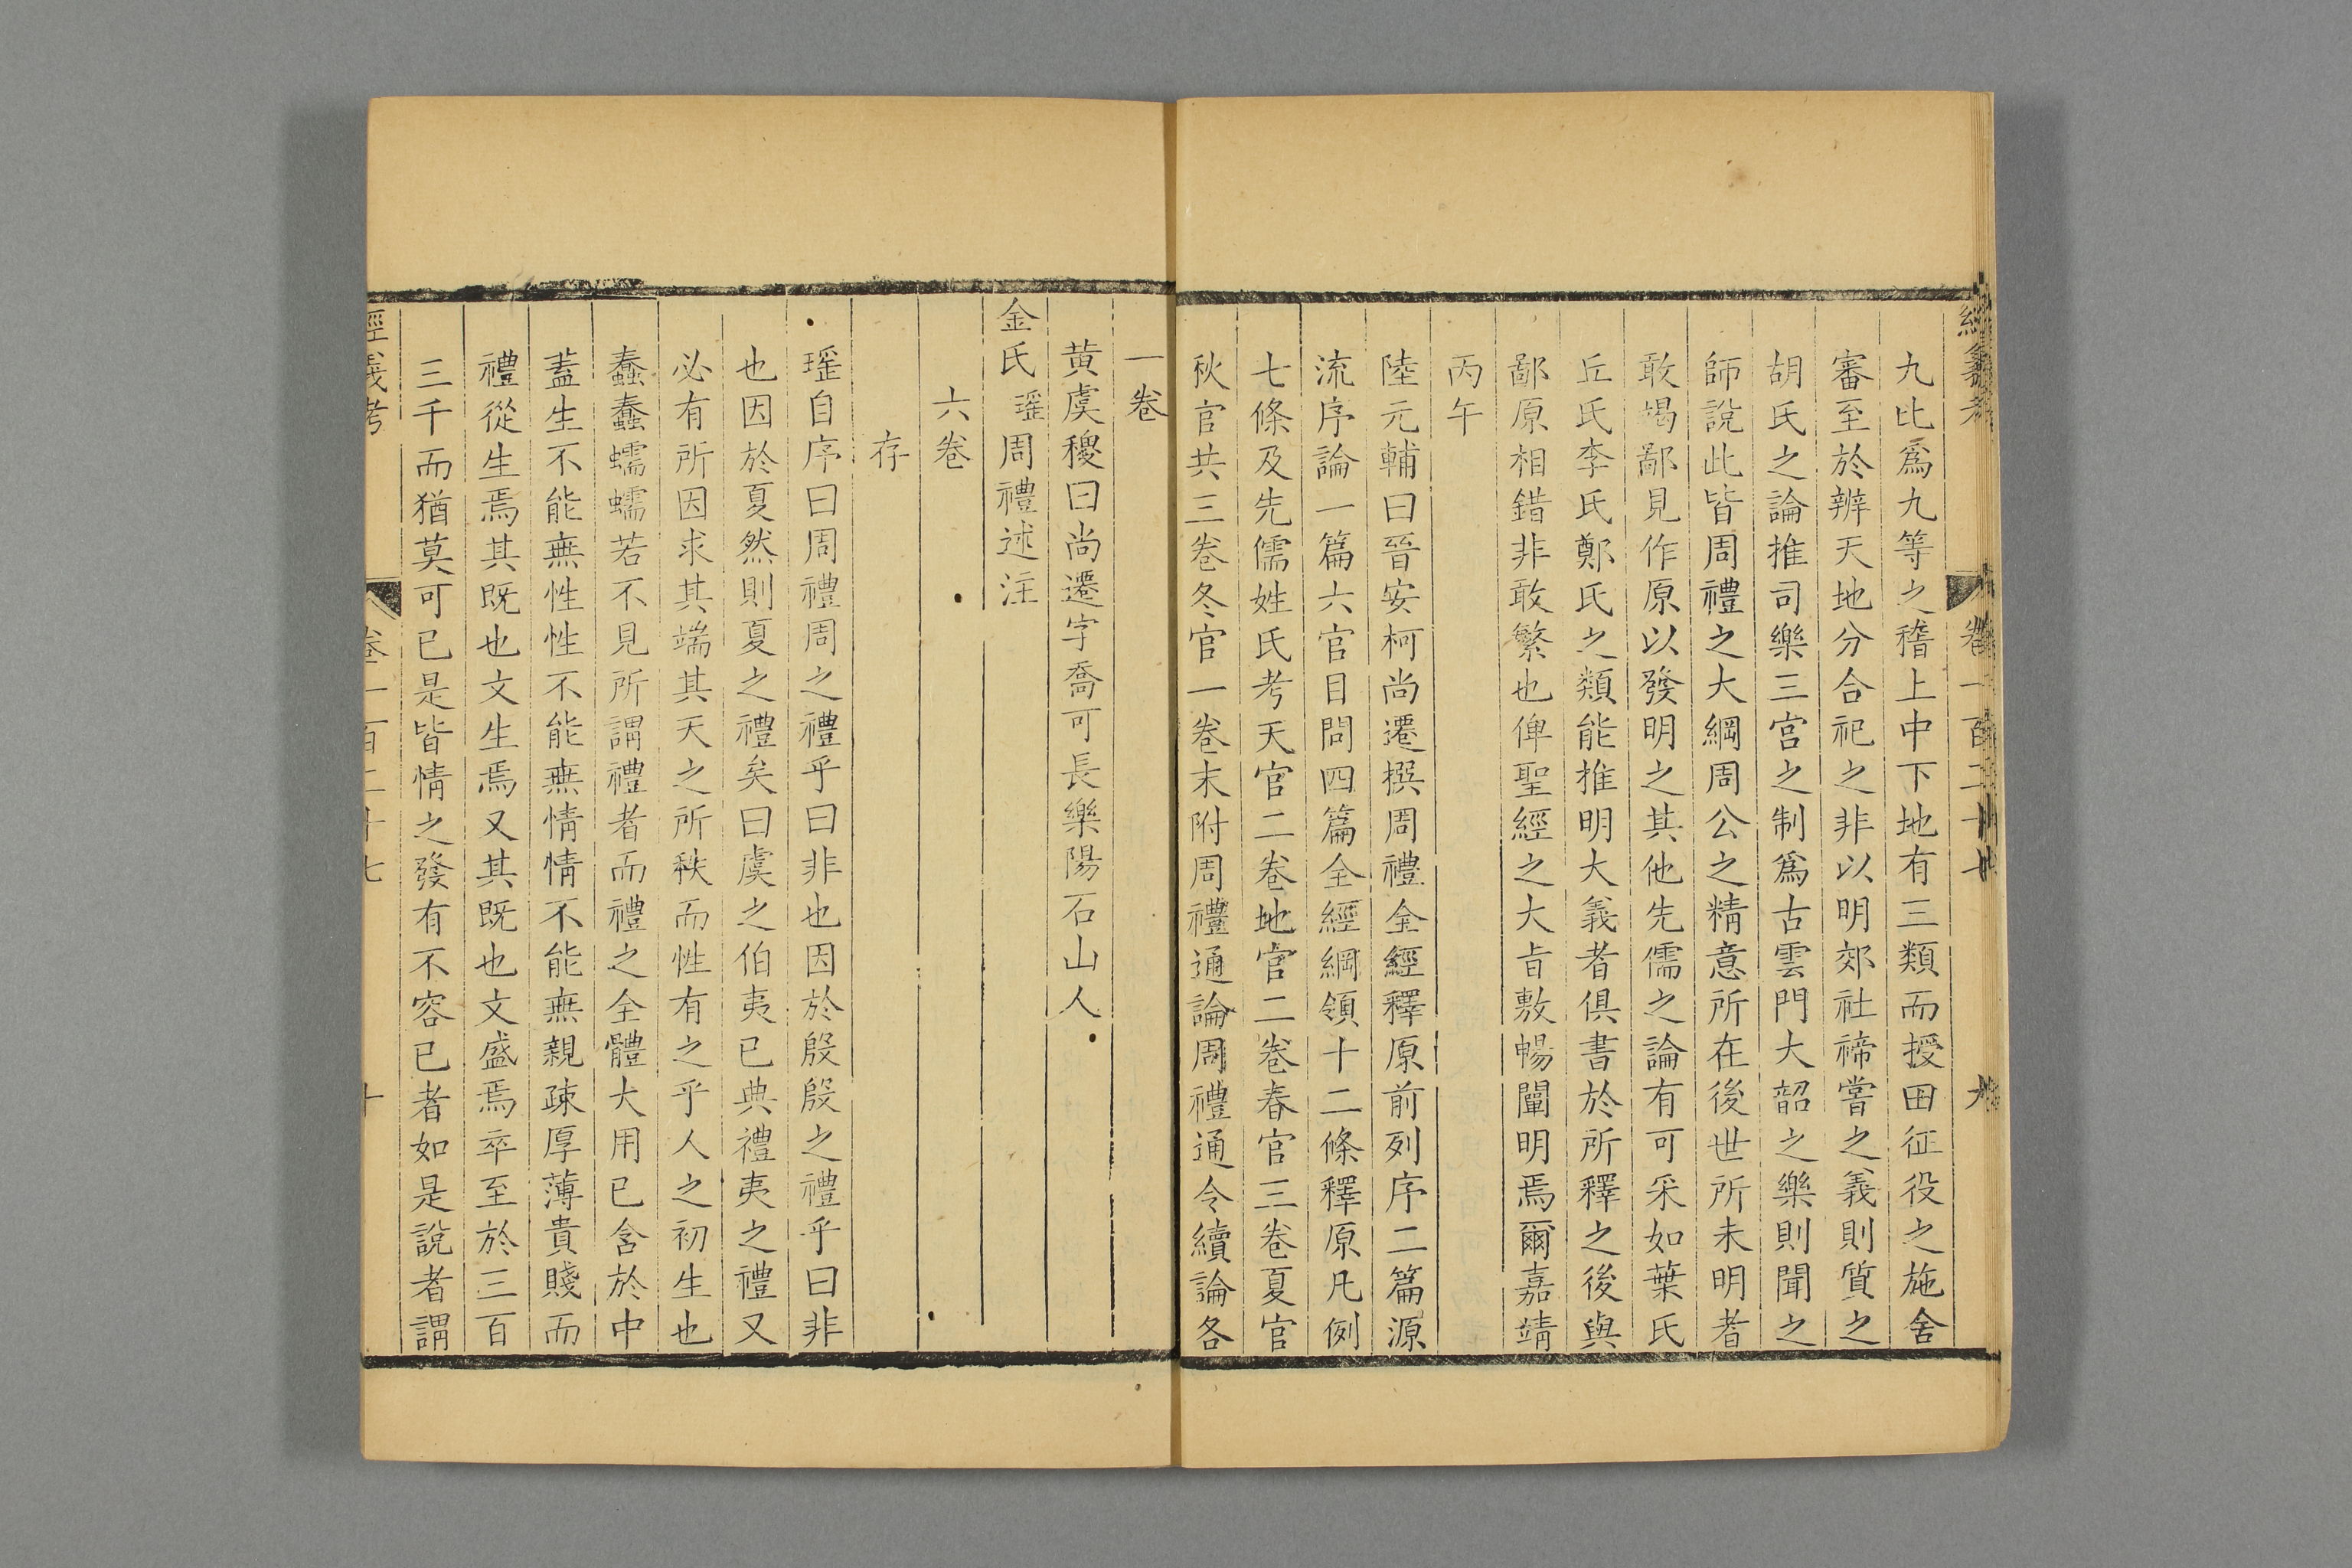 經義考 卷一百二十七 九
九比爲九等之稽上中下地有三類而授田征役之施舍
審至於辨天地分合祀之非以明郊社禘嘗之義則質之
胡氏之論推司樂三宮之制爲古雲門大韶之樂則聞之
師說此皆周禮之大綱周公之精意所在後世所未明者
敢竭鄙見作原以發明之其他先儒之論有可采如葉氏
丘氏李氏鄭氏之類能推明大義者俱書於所釋之後與
鄙原相錯非敢繁也俾聖經之大旨敷暢闡明焉爾嘉靖
丙午
陸元輔曰晉安柯尚遷撰周禮全經釋原前列序二篇源
流序論一篇六官目問四篇全經綱領十二條釋原凡例
七條及先儒姓氏考天官二卷地官二卷春官三卷夏官
秋官共三卷冬官一卷末附周禮通論周禮通今續論各
一卷
黃虞稷曰尚遷字喬可長樂陽石山人
金氏瑤周禮述注
六卷
存
瑤自序曰周禮周之禮乎曰非也因於殷殷之禮乎曰非
也因於夏然則夏之禮矣曰虞之伯夷已典禮夷之禮又
必有所因求其端其天之所秩而性有之乎人之初生也
蠢蠢蠕蠕若不見所謂禮者而禮之全體大用已含於中
蓋生不能無性性不能無情情不能無親疎厚薄貴賤而
禮從生焉其既也文生焉又其既也文盛焉卒至於三百
三千而猶莫可已是皆情之發有不容已者如是說者謂
經義考 卷一百二十七 十